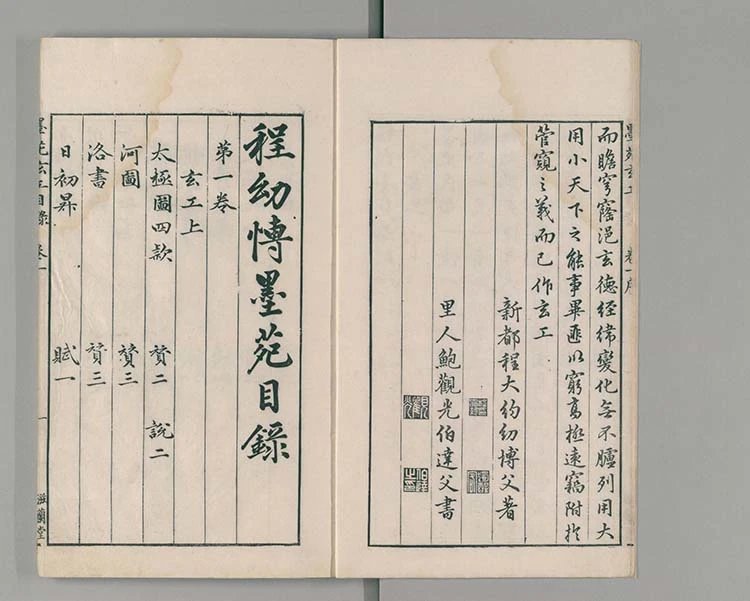 墨苑玄工 卷一序
而瞻穹窿浥玄德經緯變化無不臚列用大
用小天下之能事畢匪以窮高極遠竊附於
管窺之義而已作玄工
新都程大約幼博父著
里人鮑觀光伯達父書
程幼博墨苑目錄
第一卷
玄工上
太極圖四款 贊二 說二
河圖 贊三
洛書 贊三
日初昇 賦一
墨苑玄工目錄 卷一 一 滋蘭堂